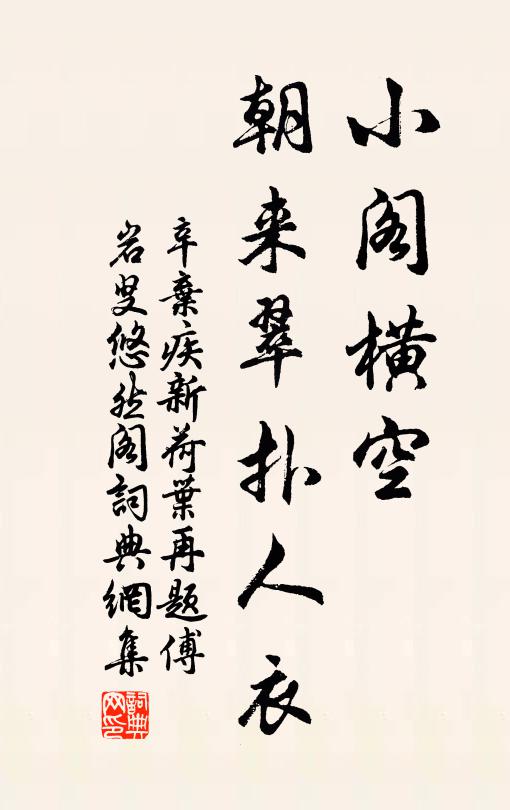 小阁横空
朝来翠扑人衣
辛棄疾新荷葉再题傅
岩叟悠然阁詞典網集
詞典
网印